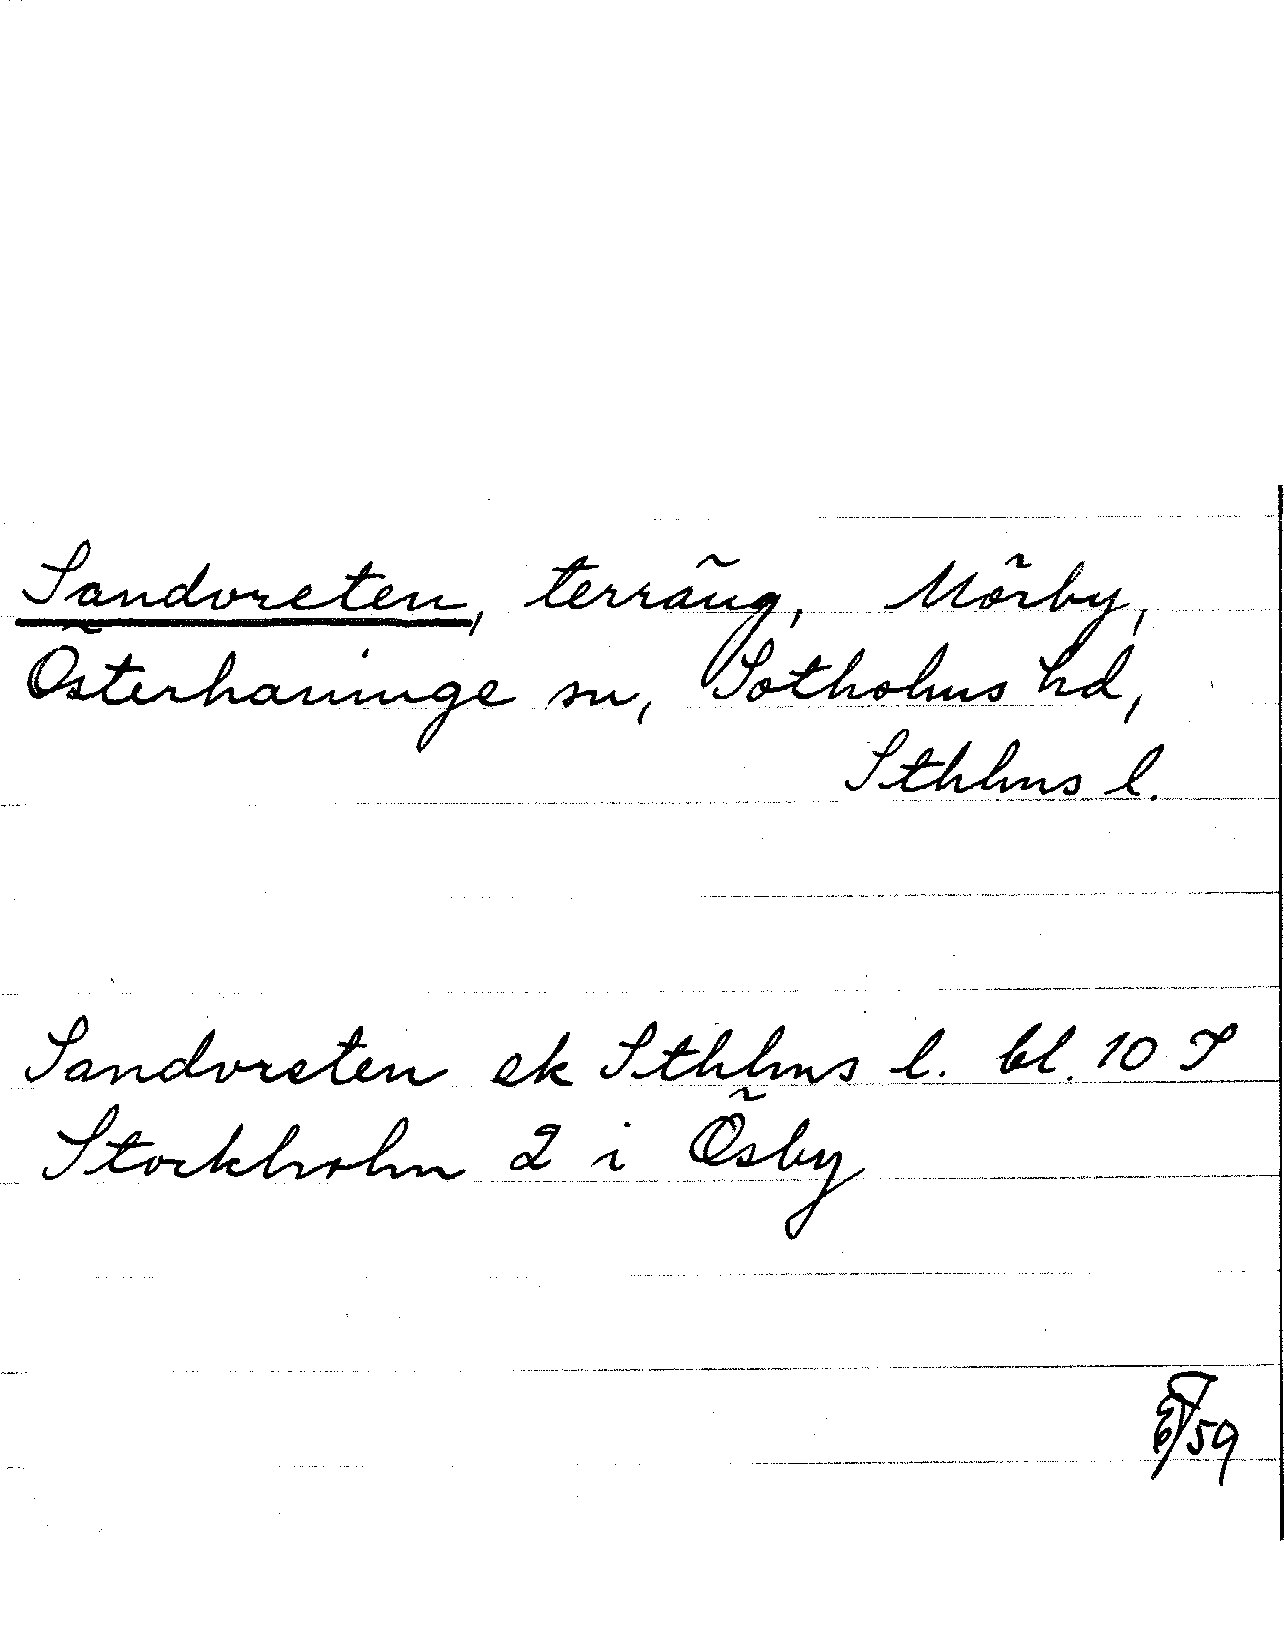 Sandvreten, terräng, Mörby,
Österhaninge sn, Sotholms hd,
Sthlms l.
Sandvreten ek Sthlms l. bl. 10 S
Stockholm 2 i Ösby
59